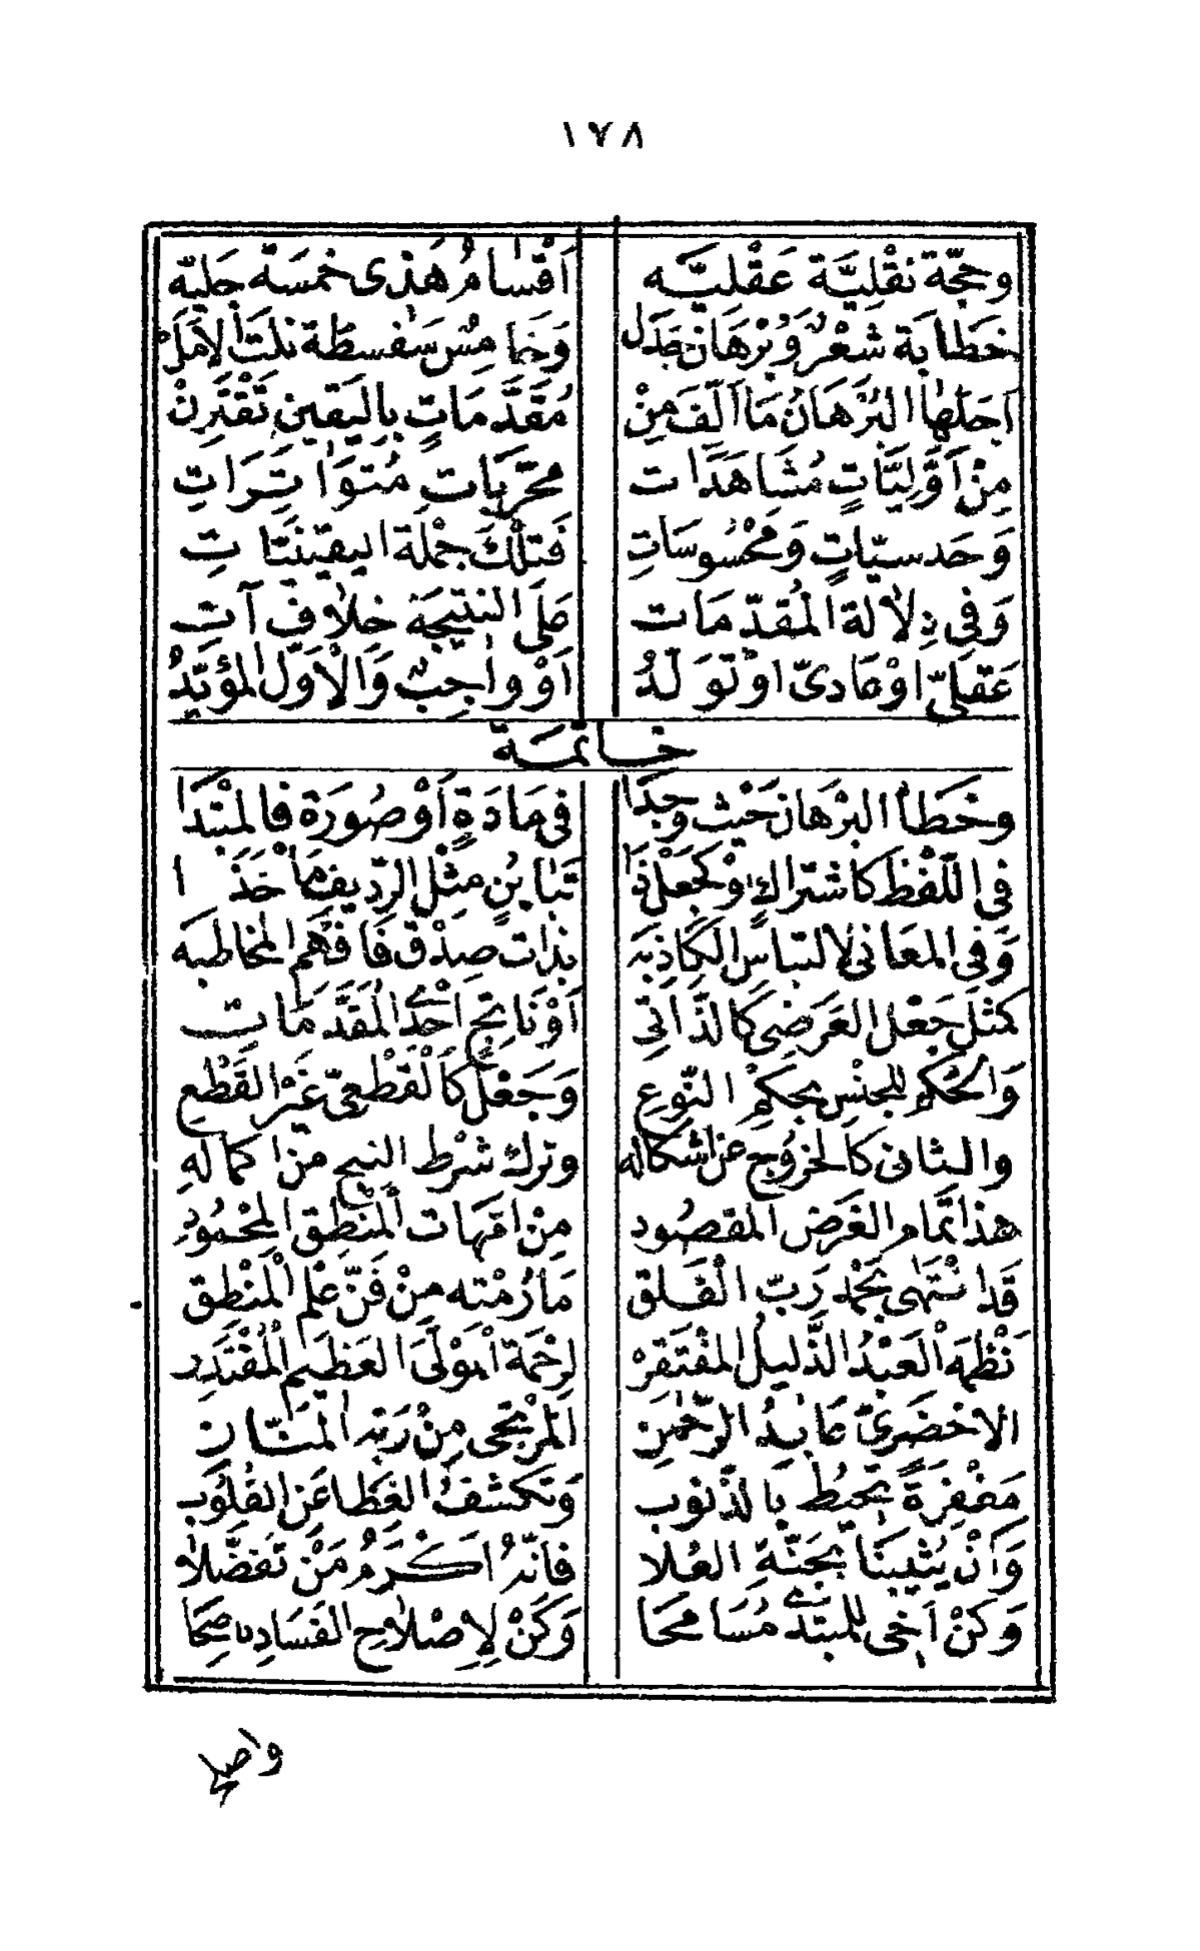 ١٧٨
وحجّة نقْلِيَّة عَقْليَّه اَقْسَامُ هَذِى خمسَة جَليّه
خَطَابَة شعْرٌ وَبُرْهَان جَدَل وَخَامِسٌ سَفسطة نلتَ الاَمَلْ
اَجَلّهَا البُرْهَانُ مَا اَلِّفَ مِنْ مُقَدَّمَاتٍ بِاليَقينِ تَقْتَرِنْ
مِنْ اَوَّلِيَّاتٍ مُشَاهَدَات مجَرَّبَاتٍ مُتَوَاتِرَاتِ
وَحَدسيّاتٍ وَمَحْسُوسَاتِ فَتلْكَ جمْلَة اليقينيَّاتِ
وَفِى دِلَالَة المُقدّمَات عَلَى النتيجَة خلَاف آتِ
عَقلىّ اوْ عَادىّ اوْ تَوَلّدُ اَوْ وَاجِبٌ وَالْاَوّل المُؤَيّدُ
خاتمَة
وخَطَأ البرْهَان حَيْث وجدَا فى مَادَةٍ اَوْ صُورَة فالمبْتدَا
فى اللّفْظ كاشترَاك اوْ كجَعْل ذَا تبَايُنٍ مثْل الرّديف مَاْخَذَا
وَفِى المعَانى لالتباس الكَاذِبَه بذَات صِدْق فَافهَم المخاطبه
كمثْلِ جَعْل العَرَضِى كَالذّاتِى اَوْ نَاتِجٍ اِحْدَى المُقَدَّمَاتِ
وَالحُكْم للجنْسِ بحكمِ النّوعِ وَجَعْلُ كَالْقَطْعِىّ غَيْر القَطْعِ
والثانى كَالخرُوج عَن اشكاله وترك شَرْط النتج منْ اكماله
هذا تَمام الغَرَض المقصُود مِنْ امّهَات المنْطِق المحْمُودِ
قَد انْتَهى بحَمْد رَبّ الْفَلق مَا رُمْته مِنْ فَنّ عِلْمِ الْمَنْطِق
نَظمَه الْعَبْدُ الذَّليلُ المفْتَقرْ لرَحْمَة المَوْلَى العَظيم المُقْتَدِر
الاخضَرىّ عَابدُ الرّحمٰن المرْتجى مِنْ رَبّه المنّان
مَغْفِرَةً تحيُط بالذّنوب وَتكشفُ الغِطَا عَن القُلُوب
وَاَنْ يُثيبَنَا بجَنَّة العُلا فانّهُ اَكْرَمُ مَنْ تَفضَّلا
وَكُنْ اَخى للمبتَدى مُسَامحَا وَكُنْ لاِصْلَاح الفَسَاد ناصِحَا
واصلح